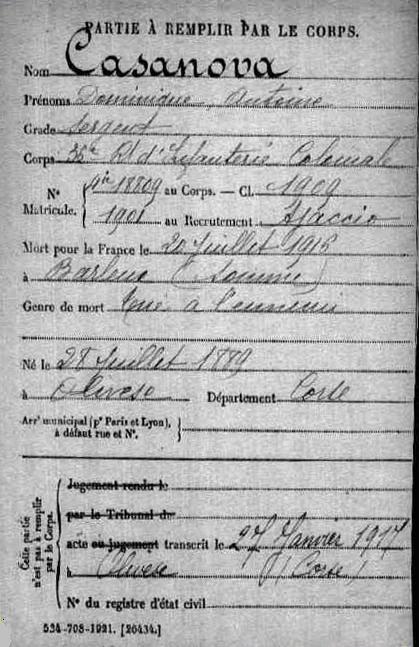 PARTIE À REMPLIR PAR LE CORPS.
Nom Casanova
Prénoms Dominique Antoine
Grade Sergent
Corps 36e Rt d'Infanterie Coloniale
N° Matricule. { 18809 au Corps. — Cl. 1909
1901 au Recrutement Ajaccio
Mort pour la France le 20 Juillet 1916
à Barleux (Somme)
Genre de mort Tué à l'ennemi
Né le 28 Juillet 1889
à Olivese Département Corse
Arrt municipal (pr Paris et Lyon), à défaut rue et N°.
Cette partie n'est pas à remplir par le Corps.
Jugement rendu le
par le Tribunal de
acte ou jugement transcrit le 27 Janvier 1917
à Olivese (Corse)
N° du registre d'état civil
534-708-1921. [26434.]